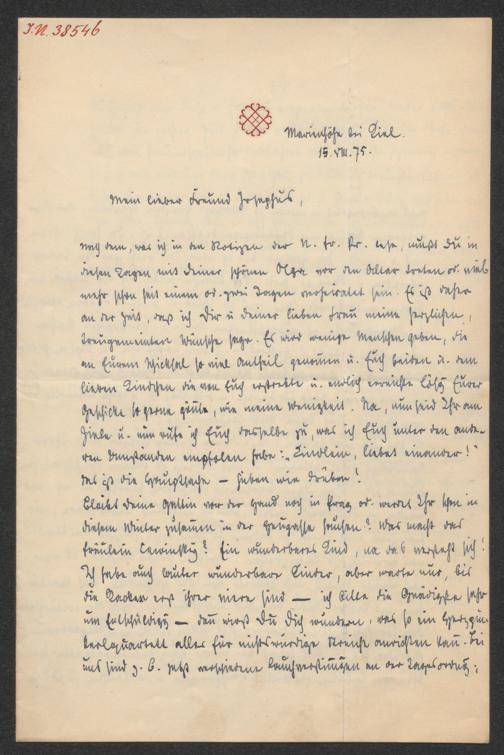 J.N. 38546
Marienhöhe bei Kiel.
15. VIII. 75.
Mein lieber Freund Josephus,
nach dem, was ich in den Notizen der N. fr. Pr. lese, mußt Du in
diesen Tagen mit deiner schönen Olga vor den Altar treten od. viel
mehr schon seit einem od. zwei Tagen verheiratet sein. Es ist daher
an der Zeit, daß ich Dir u. deiner lieben Frau meine herzlichen,
treugemeinten Wünsche sage. Es wird wenige Menschen geben, die
an Eurem Schicksal so viel Antheil genommen u. Euch beiden u. dem
lieben Kindchen die von Euch erstrebte u. endlich erreichte Lösg Eurer
Geschicke so gerne gönnte, wie meine Wenigkeit. Na, nun seid Ihr am
Ziele u. nun rufe ich Euch dasselbe zu, was ich Euch unter den ande-
ren Umständen empfolen habe: „Kindlein, liebet einander!"
das ist die Hauptsache — hüben wie drüben!
Bleibt deine Gattin vor der Hand noch in Prag od. werdet Ihr schon in
diesem Winter zusammen in der hausen? Was macht das
Fräulein Lewinsky? Ein wunderbares Kind, na das versteht sich!
Ich habe auch lauter wunderbare Kinder, aber warte nur, bis
die Racker erst ihrer viere sind — ich bitte die Gnädigste sehr
um Entschuldigg — dann wirst Du Dich wundern, was so ein
kerlquartett alles für nichtswürdige Streiche anrichten kann. Bei
uns sind z. B. jetzt verschiedene Bauchverstimmungen an der Tagesordng;